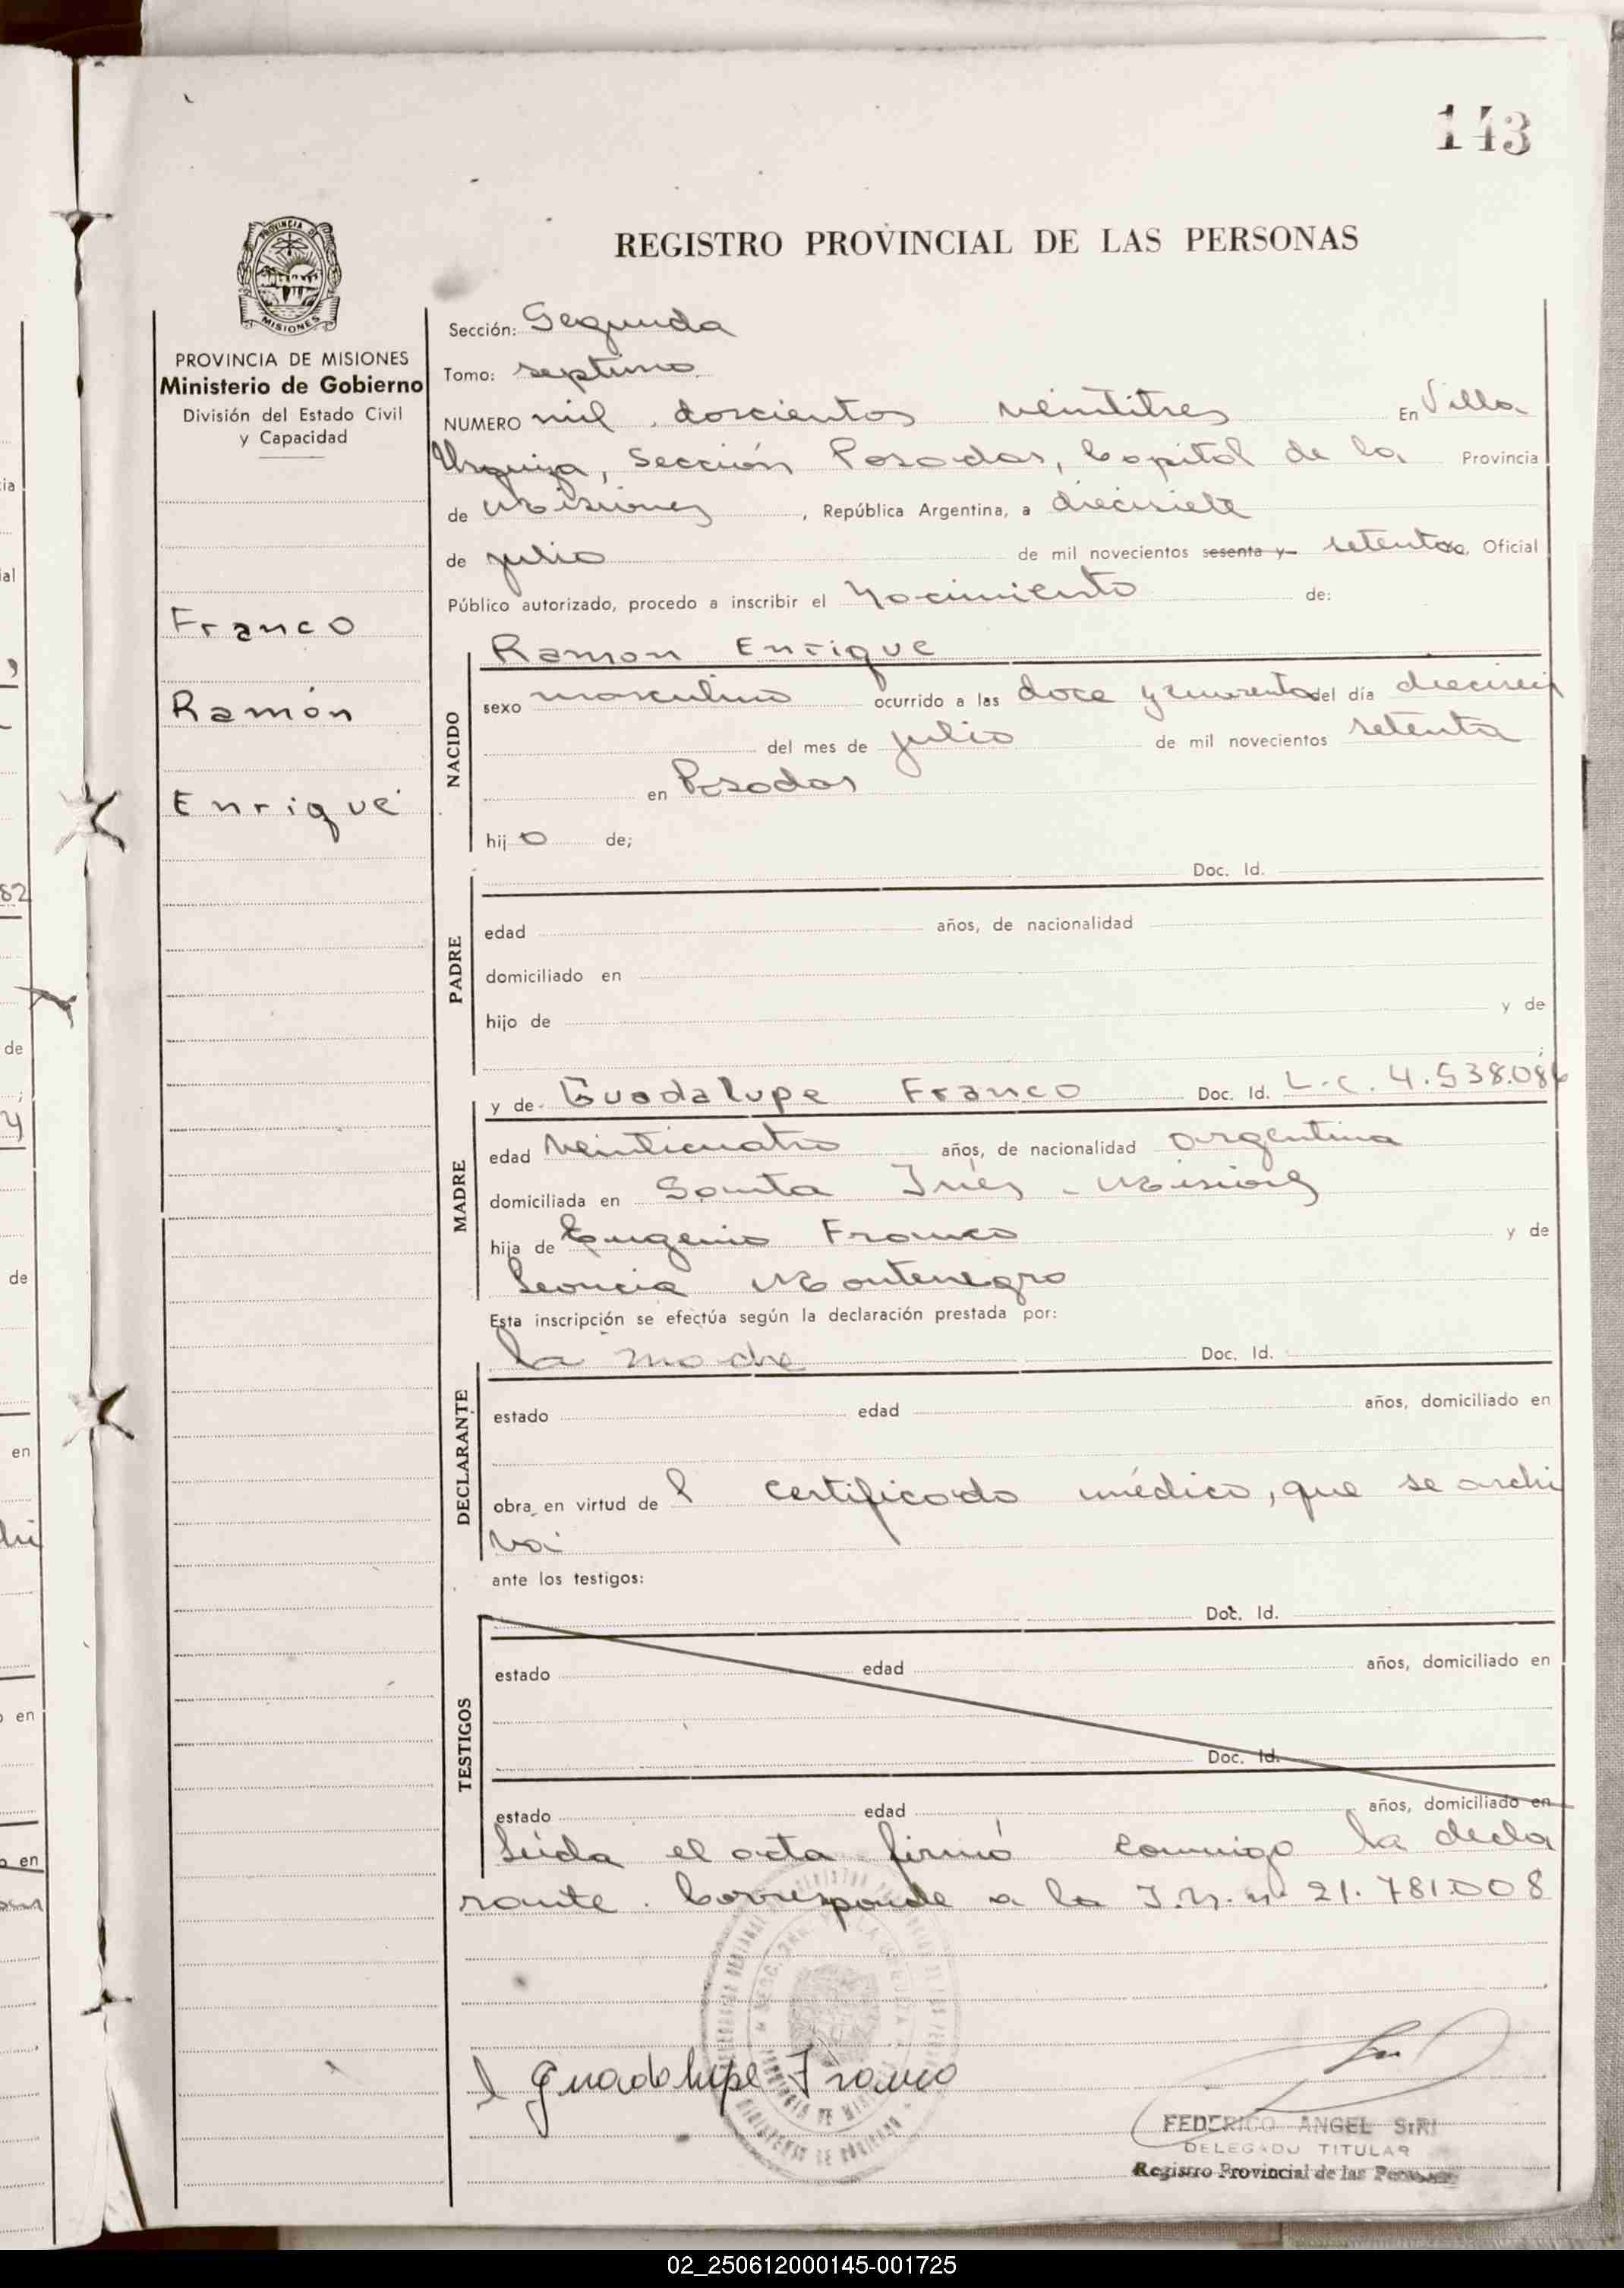 143
PROVINCIA DE MISIONES
REGISTRO PROVINCIAL DE LAS PERSONAS
PROVINCIA DE MISIONES
Ministerio de Gobierno
División del Estado Civil
y Capacidad
Franco
Ramón
Enrique
Sección: Segunda
Tomo: septimo
NUMERO mil doscientos veintitres En Villa
Urquiza, Sección Posadas, Capital de la Provincia
de Misiones, República Argentina, a diecisiete
de julio de mil novecientos sesenta y setenta Oficial
Público autorizado, procedo a inscribir el Nacimiento de:
NACIDO
Ramon Enrique
sexo masculino ocurrido a las doce y cuarenta del día dieciseis
del mes de julio de mil novecientos setenta
en Posadas
hijo de;
PADRE
Doc. Id.
edad años, de nacionalidad
domiciliado en
hijo de y de
;
MADRE
y de Guadalupe Franco Doc. Id. L.C. 4.538.086
edad veinticuatro años, de nacionalidad argentina
domiciliada en Santa Inés - Misiones
hija de Eugenio Franco y de
Leoncia Montenegro
Esta inscripción se efectúa según la declaración prestada por:
DECLARANTE
la madre Doc. Id.
estado edad años, domiciliado en
obra en virtud de l certificado médico, que se archi
va
ante los testigos:
TESTIGOS
Doc. Id.
estado edad años, domiciliado en
Doc. Id.
estado edad años, domiciliado en
Leída el acta firmó conmigo la decla
rante. Corresponde a la I.N. nº 21.781.008
Guadalupe Franco
FEDERICO ANGEL SIRI
DELEGADO TITULAR
Registro Provincial de las Personas
02_250612000145-001725